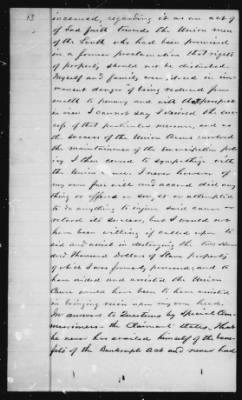 13
incensed, regarding it as an act of
of bad faith towards the Union men
of the South who had been promised
in a former proclamation that rights
of property should not be disturbed.
Myself and family were, lived in im-
minent danger of being reduced from
wealth to penury and with that prospect
in view I cannot say I desired the success
of that particular measure, and as
the success of the Union Cause involved
the maintenance of the Emancipation pol-
icy I then ceased to sympathize with
the Union cause. I never however of
my own free will and accord did any
thing or offered or tried to or attempted
to do anything to injure said cause or
retard its success, but I would not
have been willing if called upon to
aid and assist in destroying the two hun-
dred thousand Dollars of Slave property
of which I was formerly possessed, and to
have aided and assisted the Union
Cause would have been to have assisted
in bringing ruin upon my own head.
In answer to Questions by Special Com-
missioners the Claimant states, That
he never has availed himself of the bene-
fits of the Bankrupt Act and never had